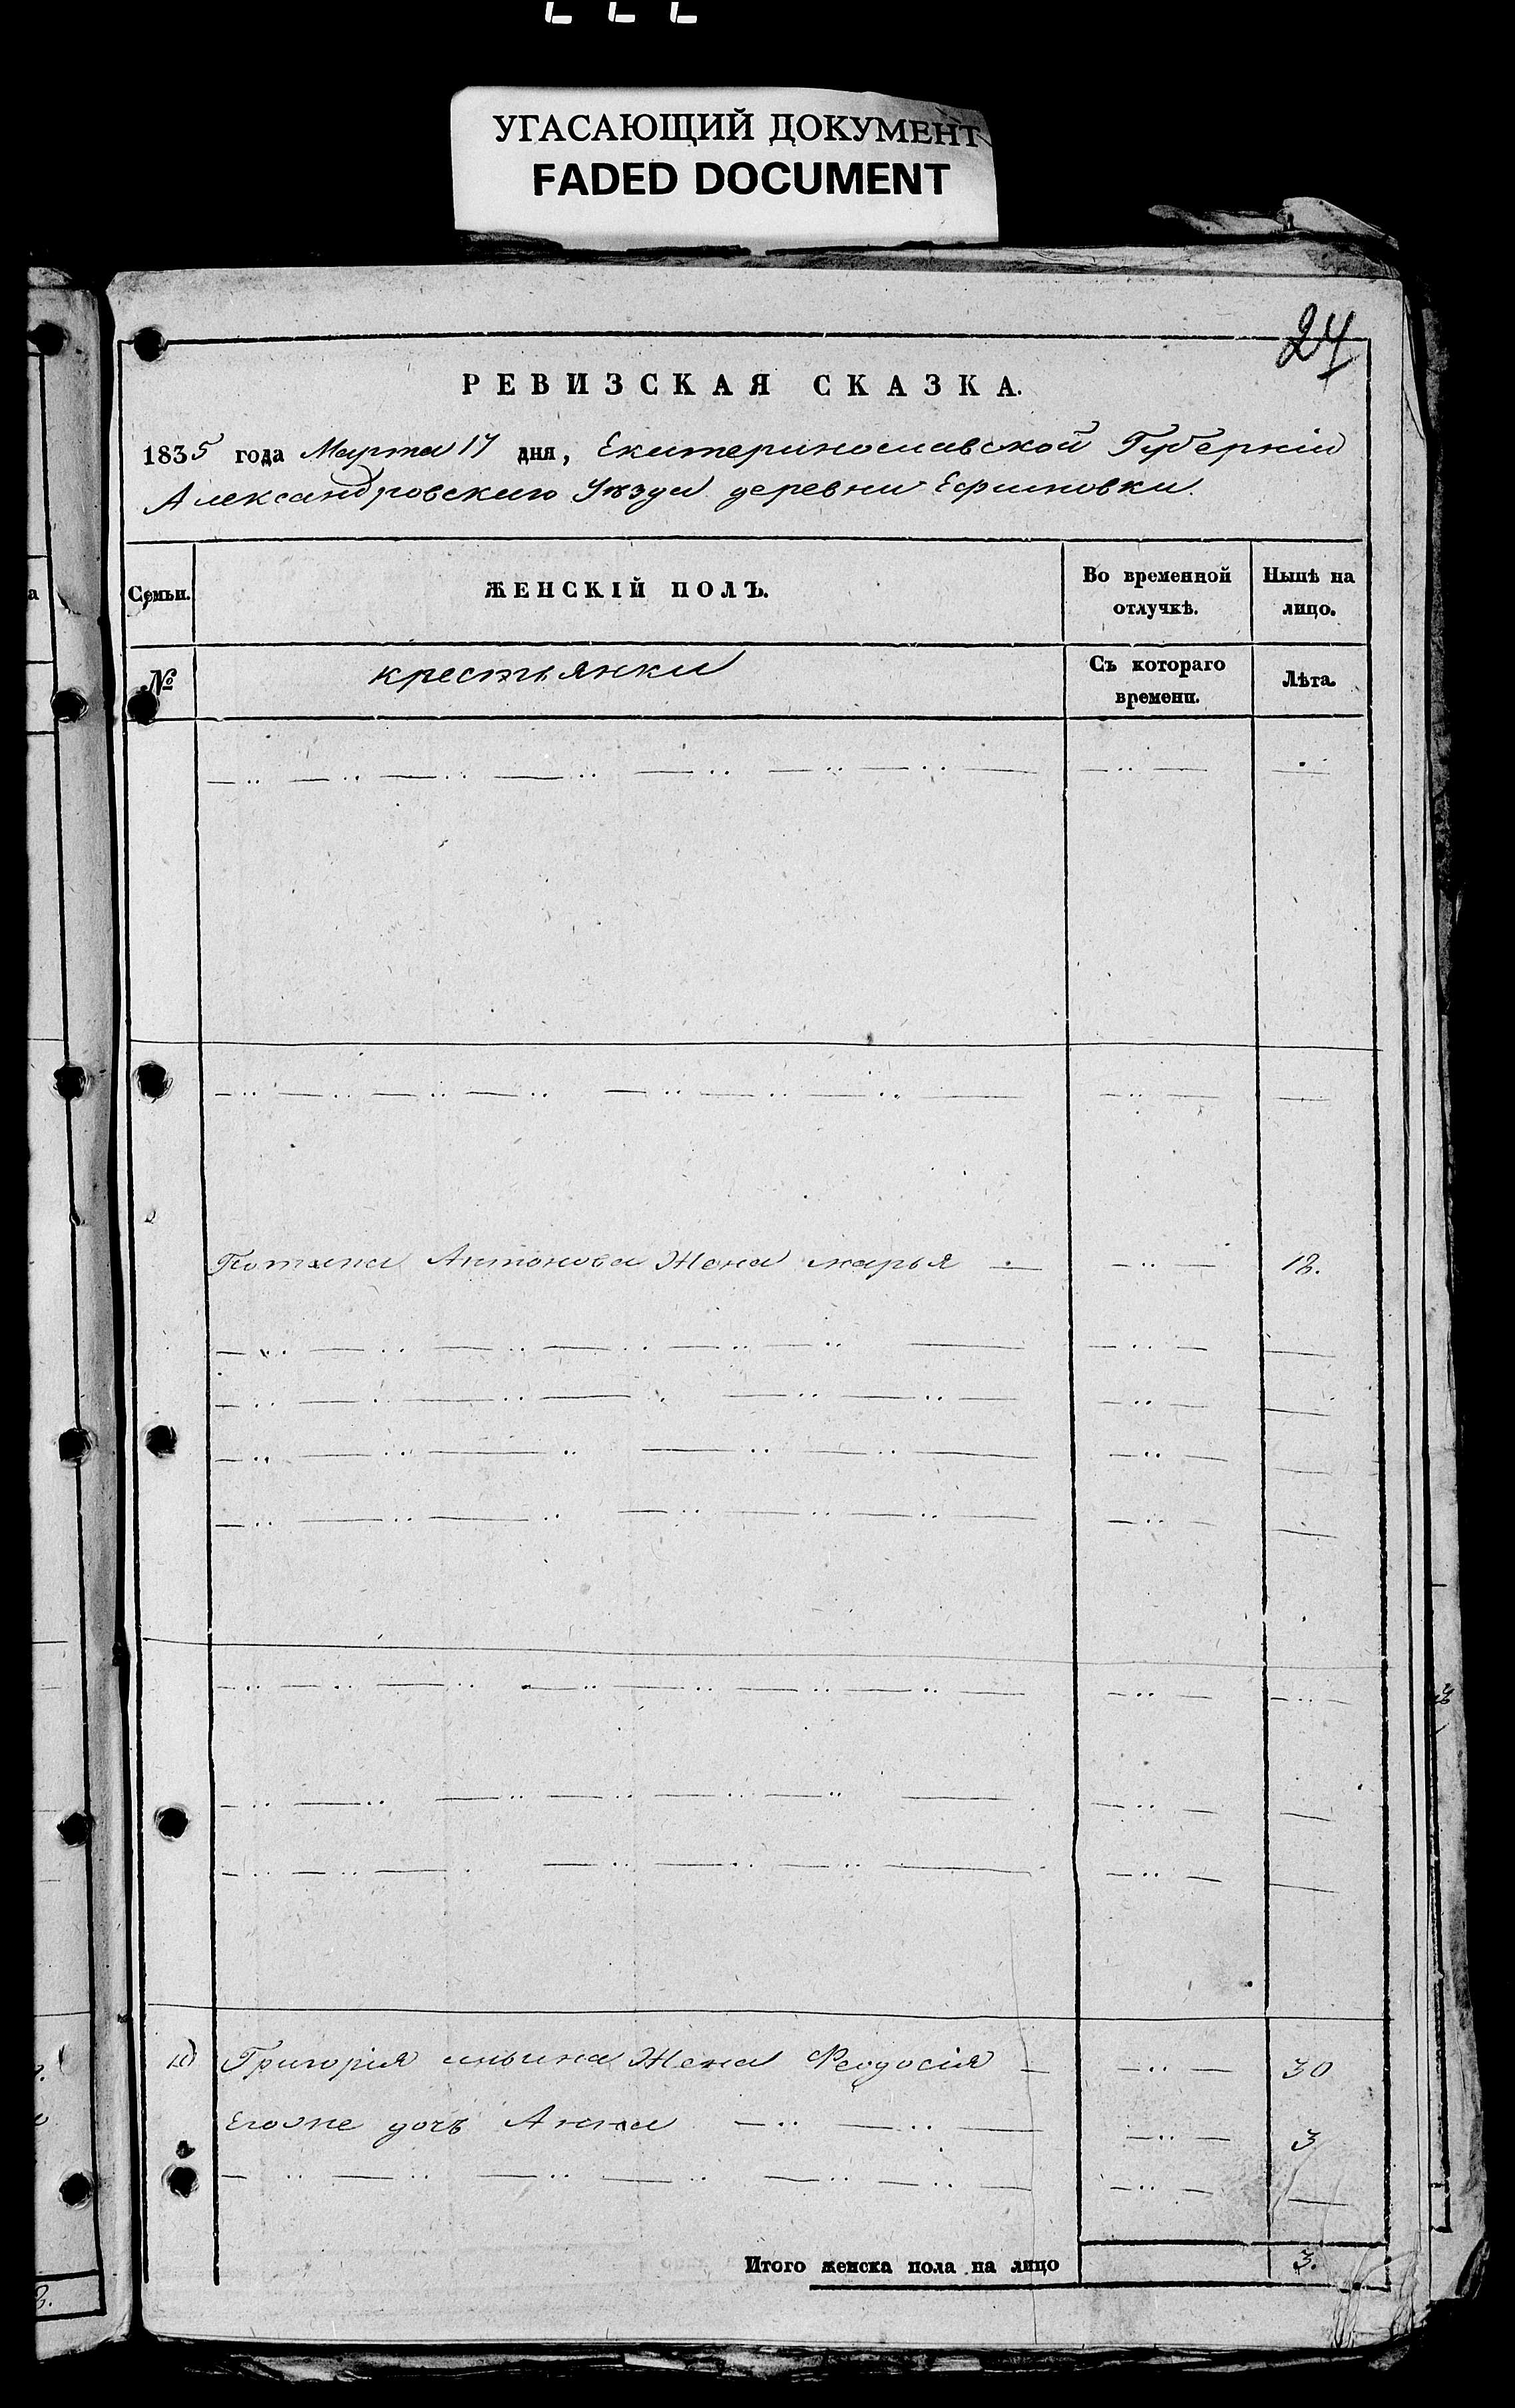 УГАСАЮЩИЙ ДОКУМЕНТ
FADED DOCUMENT
24
РЕВИЗСКАЯ СКАЗКА.
1835 года Марта 17 дня, Екатеринославской Губерніи
Александровскаго Уѣзда деревни Ефимовки.
Семьи.
ЖЕНСКІЙ ПОЛЪ.
Во временной отлучкѣ.
Нынѣ на лицо.
№
крестьянки
Съ котораго времени.
Лѣта.
Потапа Антонова Жена марья 18.
Григорія ильина Жена Феодосія 30
Егоже дочь Анна 3
Итого женска пола на лицо 3.